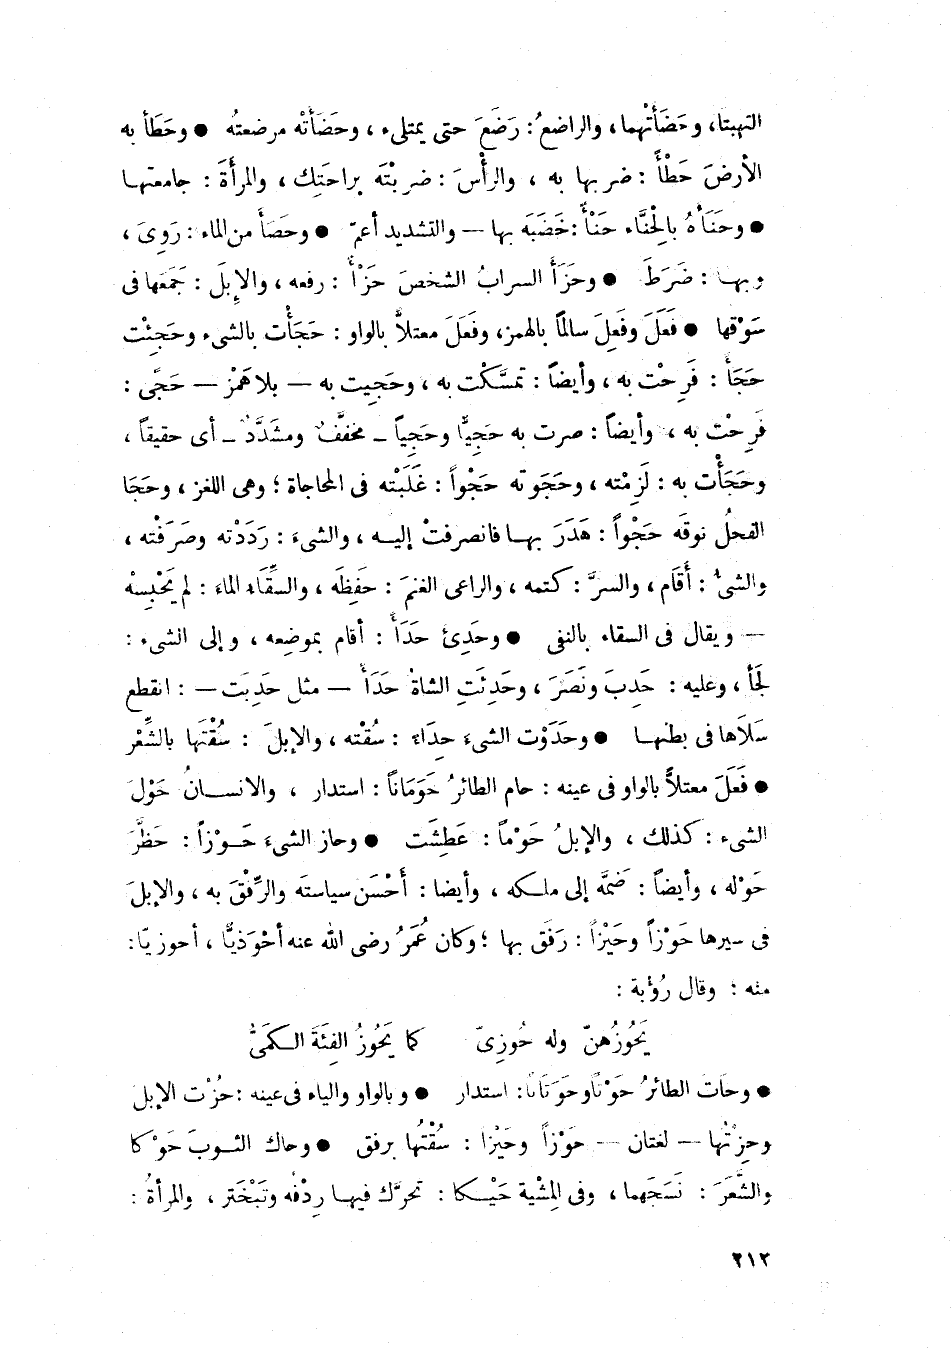 التهبتا، وحَضَأْتُهما، والراضعُ: رَضَعَ حتى يمتلىء ، وحَضَأَتْه مرضعتهُ ● وحَطَأ به
الأرضَ حَطْأً : ضربها به ، والرأْسَ : ضربْتَه براحَتِك ، والمرأَةَ : جامعتهـا
● وحَنَأهُ بالحِنَّاء حَنْأً : خَضَبَه بها — والتشديد أعمّ ● وحَصَأ من الماء : رَوِىَ ،
وبهـا : ضَرَطَ ● وحَزَأَ السرابُ الشخصَ حَزْأً : رفعه ، والإِبلَ : جَمَعَها فى
سَوْقها ● فَعَلَ وفَعِلَ سالمًا بالهمز، وفَعَلَ معتلاًّ بالواو : حَجَأْت بالشىء وحَجِئْت
حَجَأً : فَرِحْت به ، وأيضاً : تمسَّكْت به ، وحَجِيت به — بلا هَمْز — حَجًى :
فَرِحْت به ، وأيضاً : صرت به حَجِيًّا وحَجِياً ــ مخففٌ ومشَدَّدٌ ــ أى حقيقاً ،
وحَجَأْت به : لَزِمْته ، وحَجَوته حَجْواً : غَلَبْته فى المحاجاة ؛ وهى اللغز ، وحَجَا
الفحلُ نوقَه حَجْواً : هَدَرَ بهـا فانصرفتْ إليـه ، والشىءَ : رَدَدْته وصَرَفْته ،
والشىءُ : أَقَام ، والسرَّ : كتمه ، والراعى الغنمَ : حَفِظَه ، والسِّقَاء الماءَ : لم يَحْبِسْهُ
— ويقال فى السقاء بالنفى ● وحَدِئَ حَدَأً : أقام بموضعه ، وإلى الشىء :
لَجَأ ، وعليه : حَدِبَ ونَصَرَ ، وحَدِئَتِ الشاةُ حَدَأً — مثل حَدِبَت — : انقطع
سَلَاها فى بطنهـا ● وحَدَوْت الشىءَ حِدَاءً : سُقْته ، والإبلَ : سُقْتَها بالشِّعْر
● فَعَلَ معتلاًّ بالواو فى عينه : حام الطائرُ حَوَمَاناً : استدار ، والانســانُ حَوْلَ
الشىء : كذلك ، والإبلُ حَوْماً : عَطِشَت ● وحاز الشىءَ حَـوْزاً : حَظَّرَ
حَوْله ، وأيضاً : ضَمَّه إلى ملـكه ، وأيضا : أَحْسَن سياستَه والرِّفْقَ به ، والابلَ
فى سيرها حَوْزاً وحَيْزاً : رَفَق بها ؛ وكان عُمَرُ رضى الله عنه أحْوَذيًّا ، أحوزيّا:
منه : وقال رُؤبة :
يَحُوزُهنّ وله حُوزِىّ كما يَحُوزُ الفِئَةَ الـكَمَىُّ
● وحَات الطائرُ حَوْتًا وحَوَتَانًا: استدار ● وبالواو والياء فى عينه : حُزْت الإبل
وحِزْتُها — لغتان — حَوْزاً وحَيْزا : سُقْتُها برفق ● وحاك الثــوبَ حَوْكا
والشَّعَرَ : نَسَجَهما ، وفى المِشْية حَيْــكا : تحرَّك فيهـا رِدْفُه وتَبَخْتَر ، والمرأةُ :
٢١٢